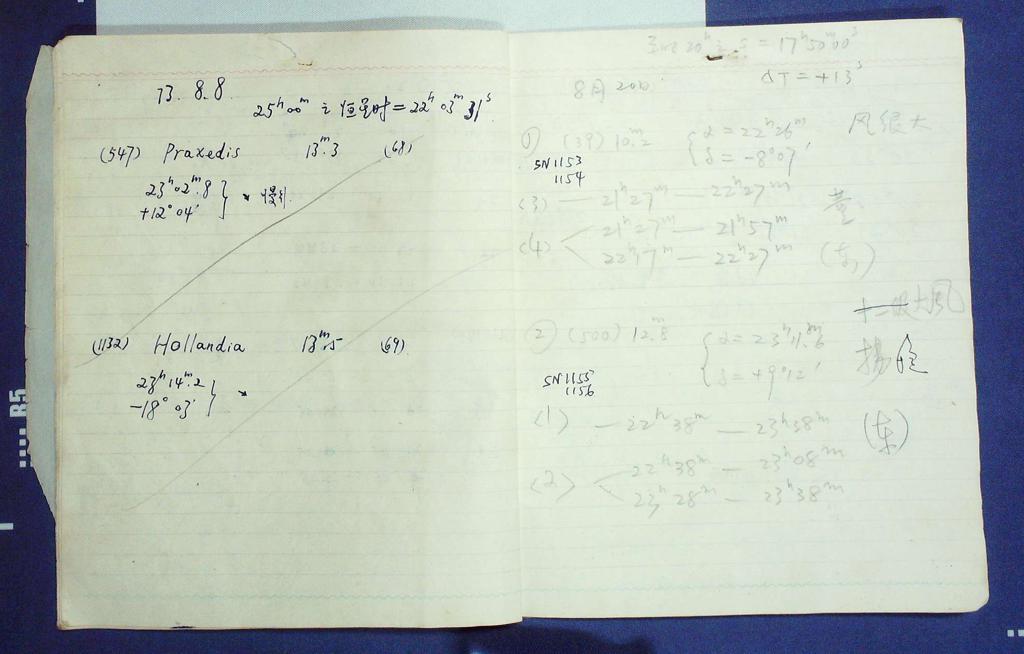 73. 8. 8.
25ʰ00ᵐ之恒星时=22ʰ03ᵐ31ˢ
(547) Praxedis 13ᵐ.3 (68)
23ʰ02ᵐ.8
+12°04′
(1132) Hollandia 13ᵐ.5 (69)
23ʰ14ᵐ.2
-18°03′
20ʰ之S=17ʰ50ᵐ00ˢ
ΔT=+13ˢ
8月20日
风很大
① (39) 10.2 α=22ʰ26ᵐ
δ=-8°07′
SN1153
1154
(3) — 21ʰ27ᵐ — 22ʰ27ᵐ
(4) 21ʰ27ᵐ — 21ʰ57ᵐ
22ʰ17ᵐ — 22ʰ27ᵐ
(东)
十二级大风
② (500) 12.8 α=23ʰ11.ᵐ6
δ=+9°12′
SN1155
1156
(1) — 22ʰ38ᵐ — 23ʰ38ᵐ
(东)
(2) 22ʰ38ᵐ — 23ʰ08ᵐ
23ʰ28ᵐ — 23ʰ38ᵐ
R5